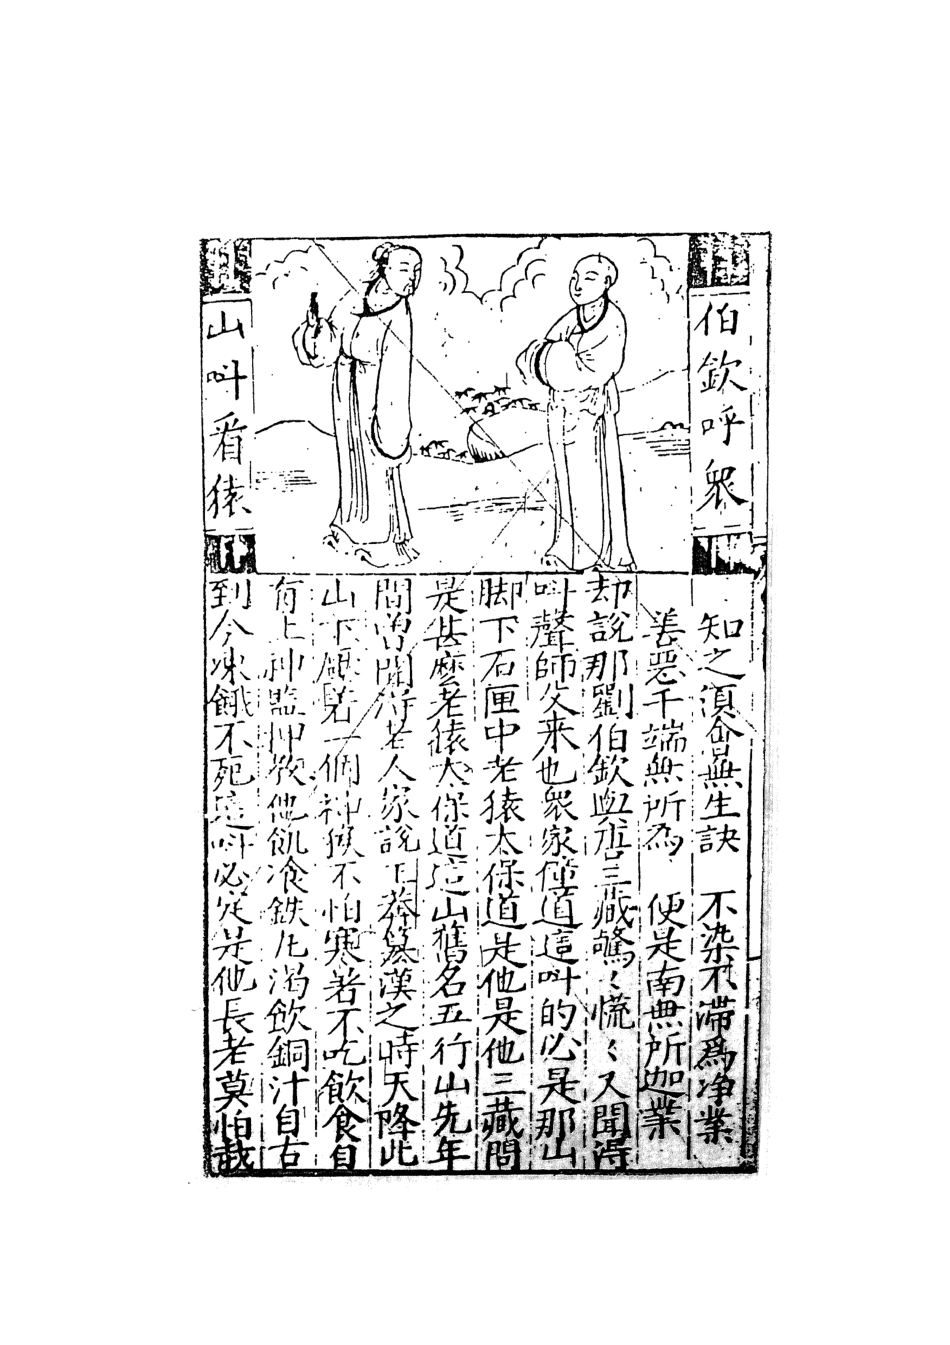 伯欽呼衆
山叫看猿
知之須會無生訣　不染不滯爲净業
善惡千端無所為　便是南無所迦業
却說那劉伯欽與唐三藏驚〻慌〻又聞得
叫聲師父来也衆家僮道這叫的必是那山
脚下石匣中老猿太保道是他是他三藏問
是甚麽老猿太保道這山舊名五行山先年
間曽聞得老人家說王莽篡漢之時天降此
山下壓着一個神猴不怕寒暑不吃飲食自
有土神監押教他飢飡鉄丸渴飲銅汁自古
到今凍餓不死這叫必定是他長老莫怕我